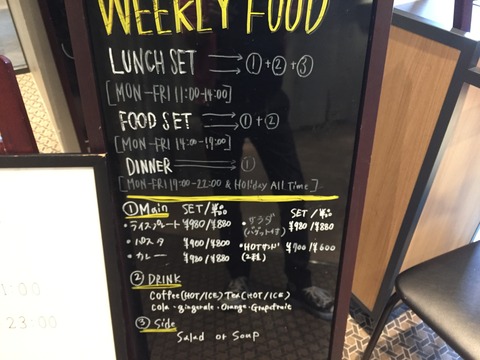 WEEKLY FOOD
LUNCH SET → ①+②+③
[MON-FRI 11:00-14:00]
FOOD SET → ①+②
[MON-FRI 14:00-19:00]
DINNER → ①
[MON-FRI 19:00-22:00 & Holiday All Time]
①Main SET/単品 SET/単品
・ライスプレート ¥980/¥880 ・サラダ (バゲット付) ¥980/¥880
・パスタ ¥900/¥800 ・HOTサンド (2種) ¥700/¥600
・カレー ¥980/¥880
② DRINK
Coffee(HOT/ICE) Tea(HOT/ICE)
Cola・gingerale・Orange・Grapefruit
③ Side
Salad or Soup
:00
23:00